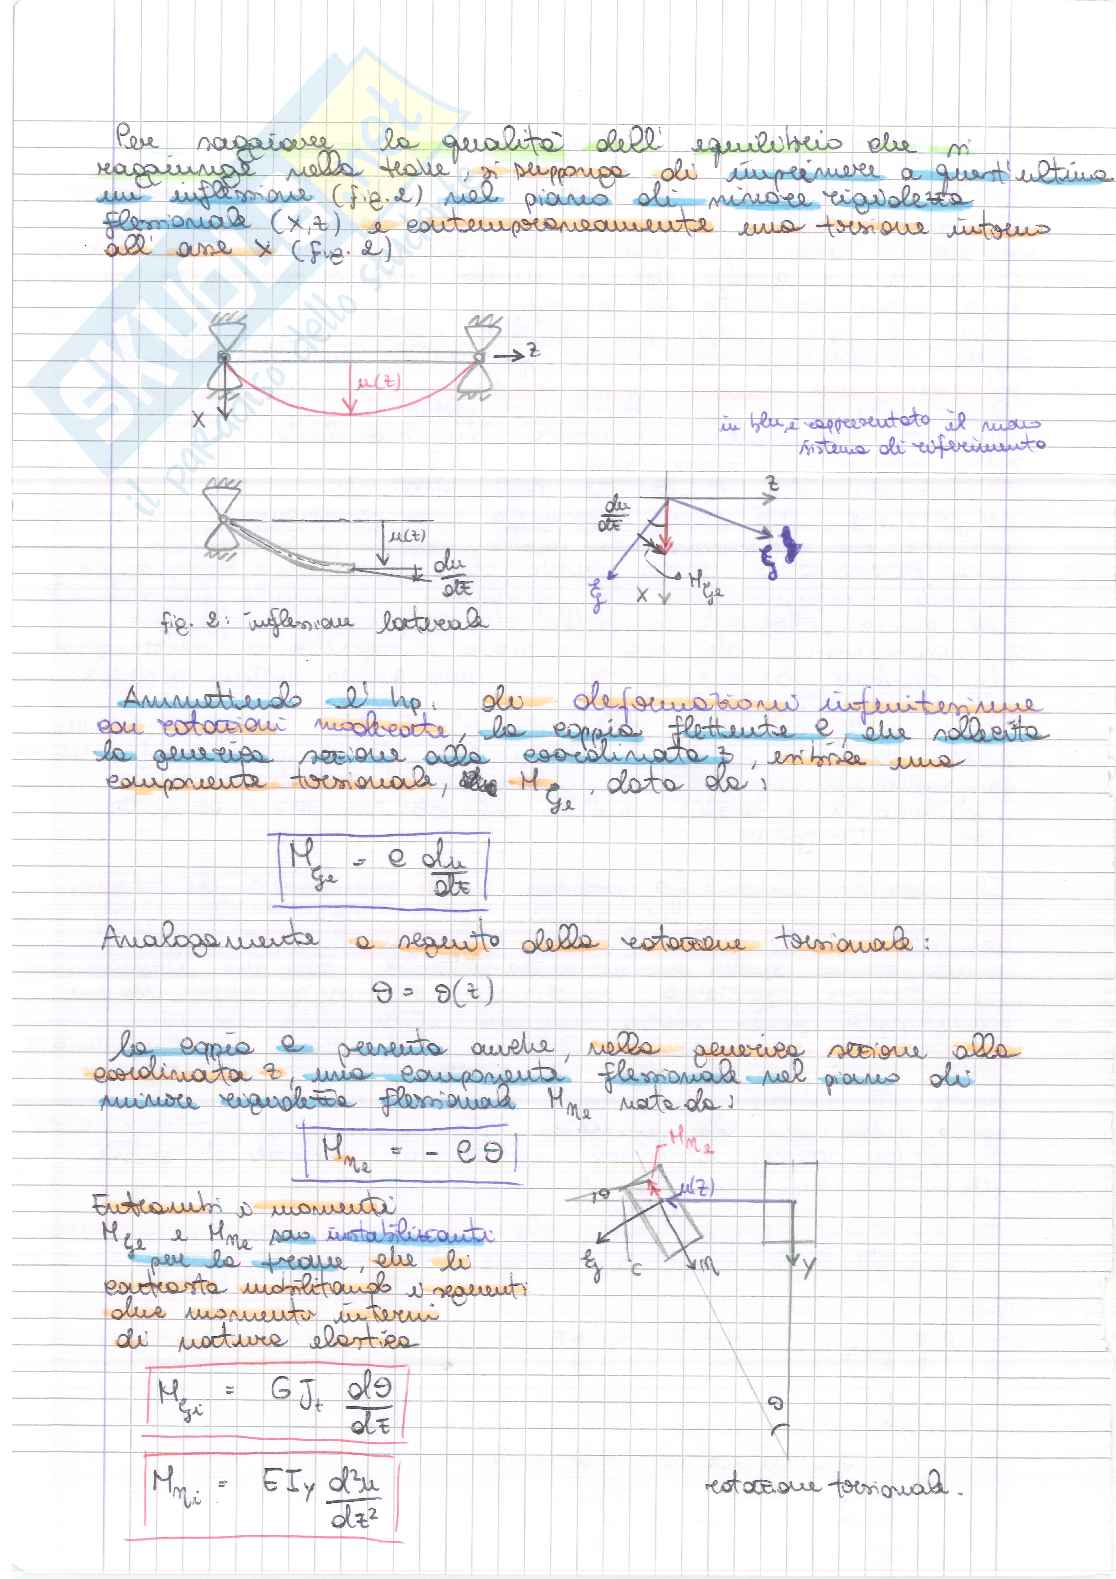 Per saggiare la qualità dell'equilibrio che si
raggiunge nella trave, si supponga di imprimere a quest'ultima
un inflessione (fig. 2) nel piano di minore rigidezza
flessionale (x,z) e contemporaneamente una torsione intorno
all'asse x (fig. 2)
z
u(z)
x
in blu è rappresentato il nuovo
sistema di riferimento
u(z)
du/dz
z
du/dz
ξ
x
Mζe
ζ
fig. 2: inflessione laterale
Ammettendo l'hp. di deformazioni infinitesime
con rotazioni moderate, la coppia flettente C, che sollecita
la generica sezione alla coordinata z, esibisce una
componente torsionale, Mζe, data da:
Mζe = C du/dz
Analogamente a seguito della rotazione torsionale:
θ = θ(z)
la coppia C presenta anche, nella generica sezione alla
coordinata z, una componente flessionale nel piano di
minore rigidezza flessionale Mηe nata da:
Mηe = - Cθ
Mηe
θ
u(z)
ξ
c
η
y
θ
rotazione torsionale.
Entrambi i momenti
Mζe e Mηe sono instabilizzanti
per la trave, che li
contrasta mobilitando i seguenti
due momenti interni
di natura elastica
Mζi = G Jt dθ/dz
Mηi = E Iy d²u/dz²
SKUOLA.net
il paradiso dello studente